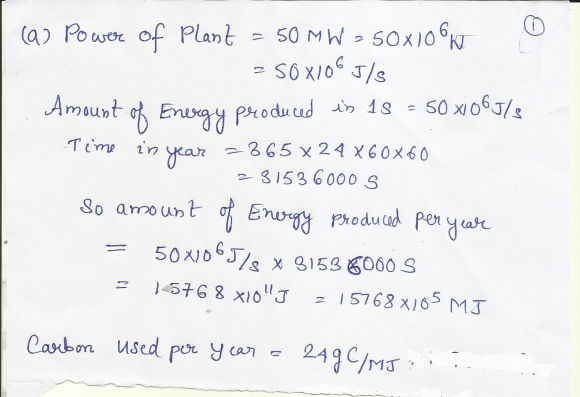 ①
(a) Power of Plant = 50 MW = 50x10⁶W
= 50x10⁶ J/s
Amount of Energy produced in 1s = 50x10⁶J/s
Time in year = 365 x 24 x 60x60
= 31536000 S
So amount of Energy produced per year
= 50x10⁶J/s x 31536000 S
= 1.5768 x10¹¹J = 15768x10⁵ MJ
Carbon used per year = 24gC/MJ